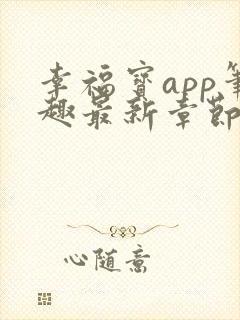 幸福宝app笔
趣最新章节
心随意